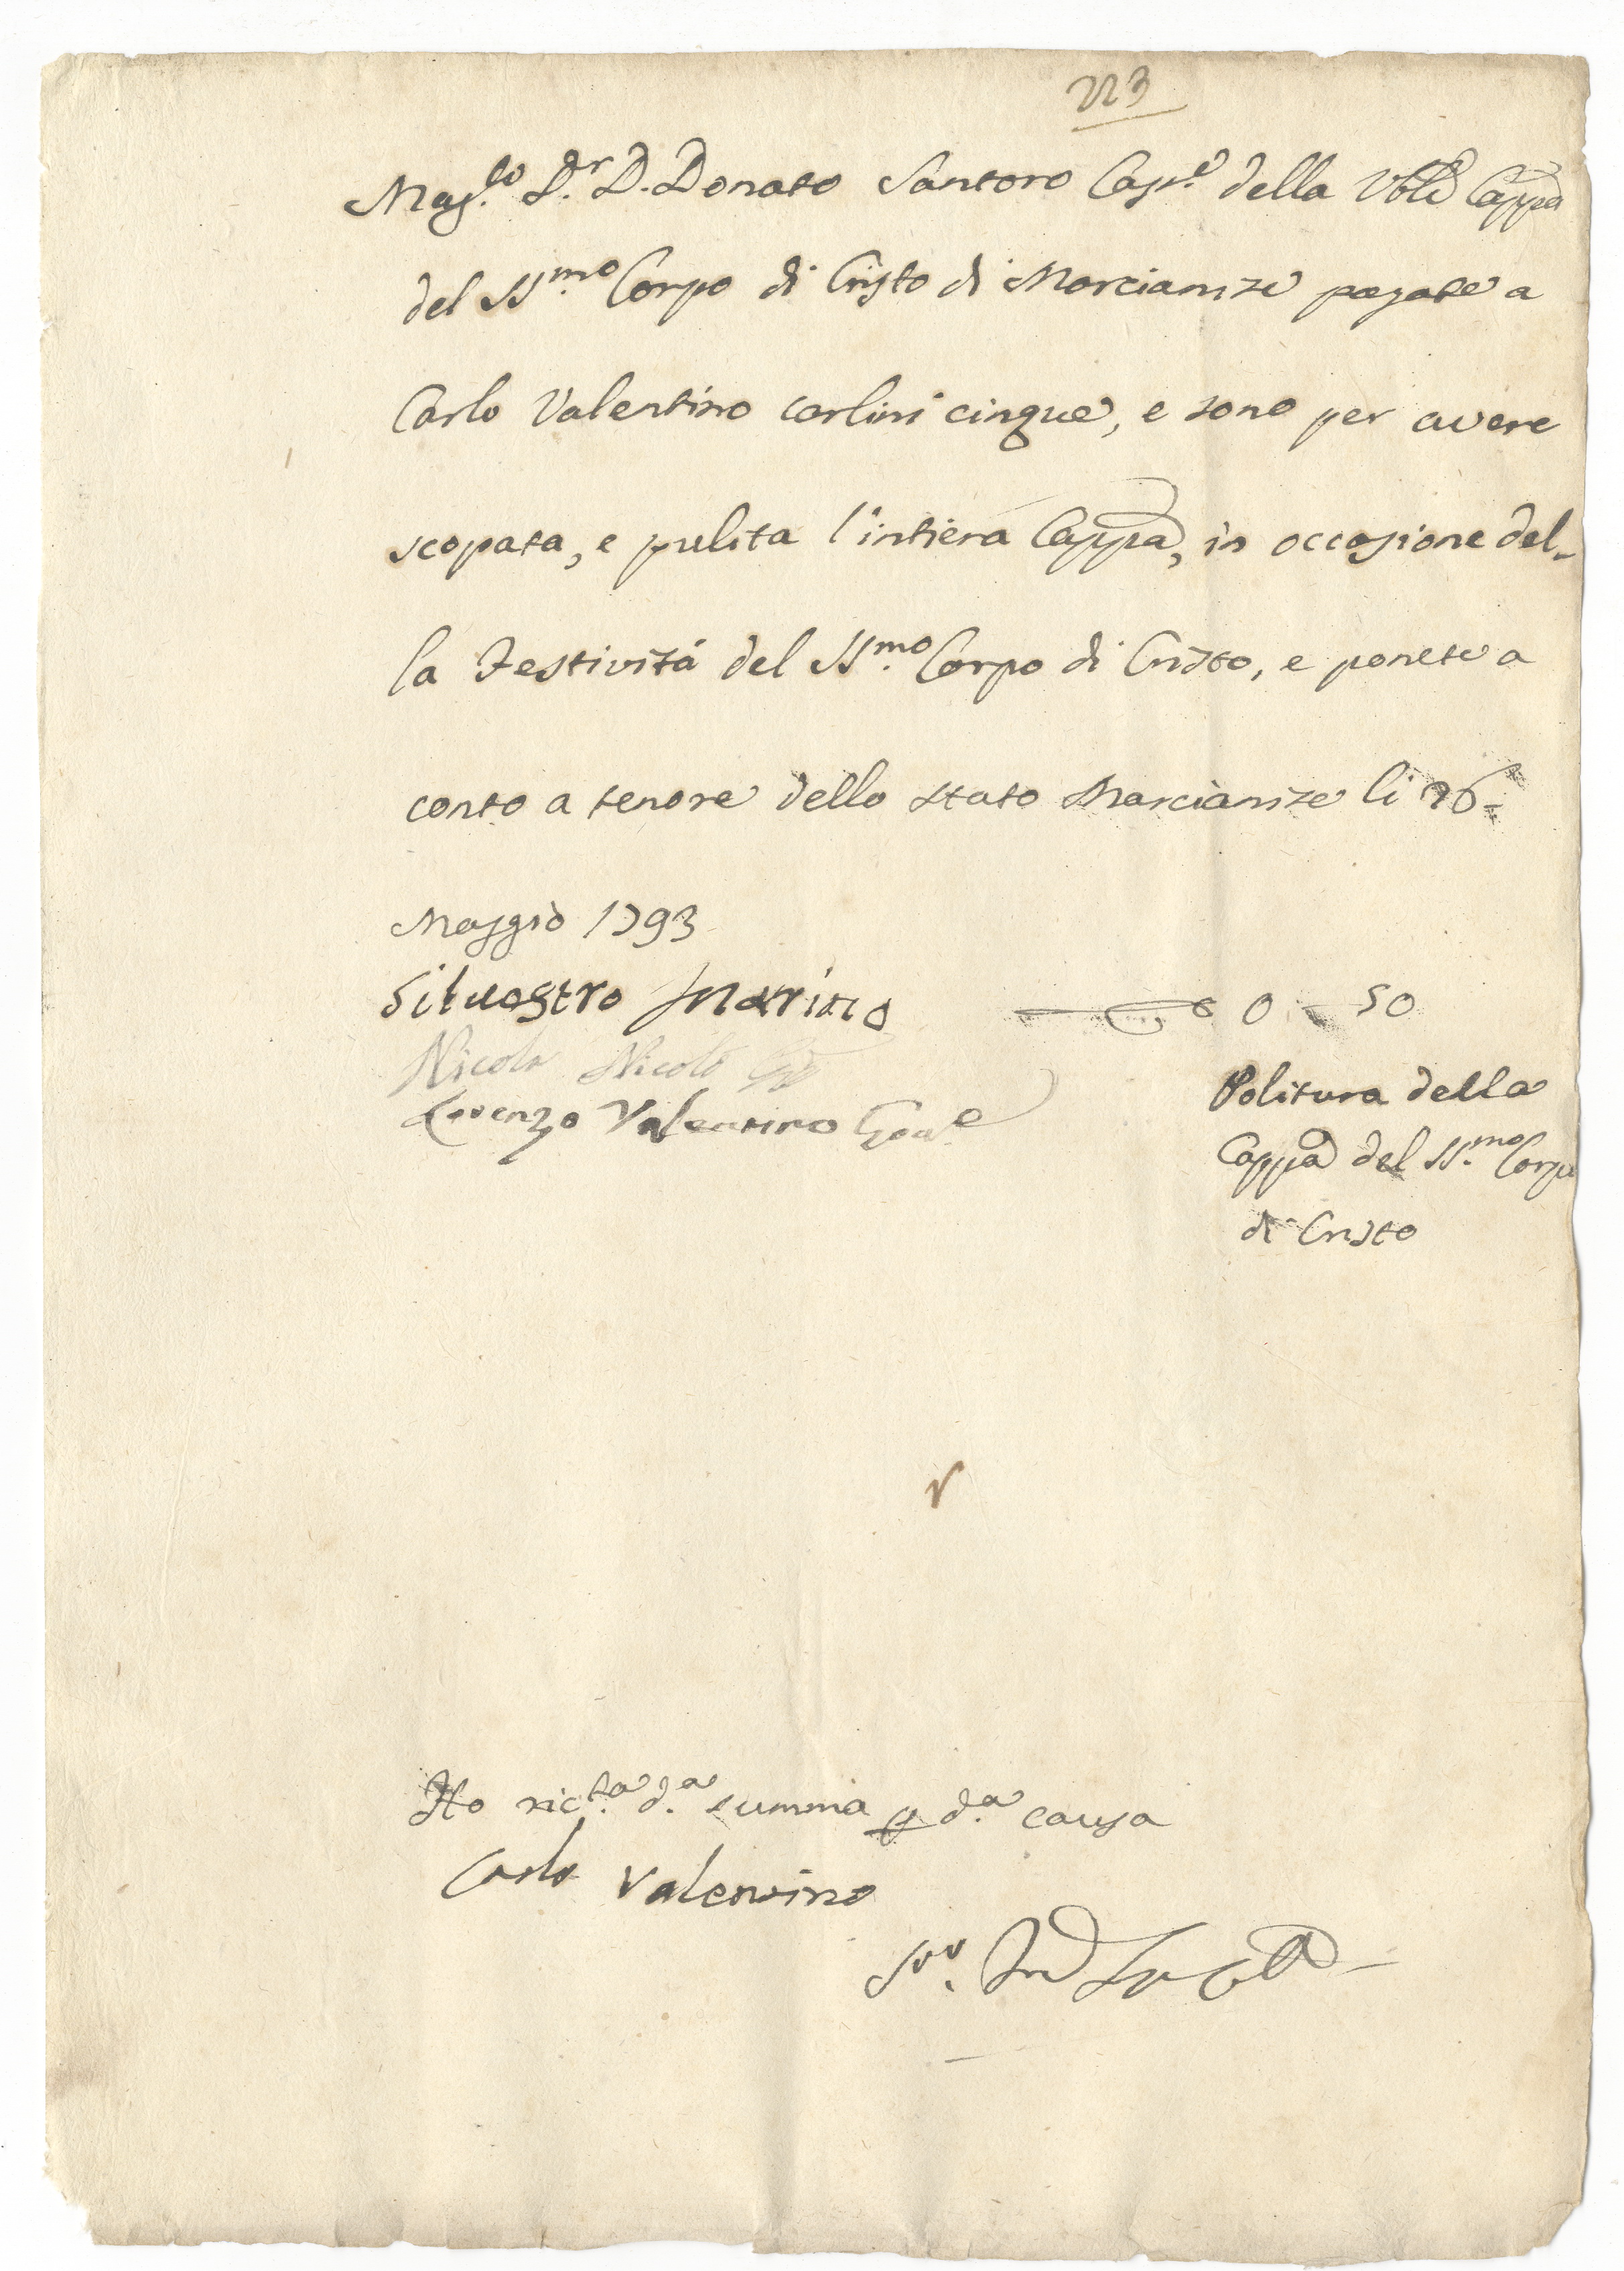 223
Mag.co D.r D. Donato Santoro Cass.e della Vble Cappa
del SS.mo Corpo di Cristo di Marcianise pagate a
Carlo Valentino carlini cinque, e sono per avere
scopata, e pulita l'intiera Cappa, in occasione del-
la Festività del SS.mo Corpo di Cristo, e ponete a
conto a tenore dello stato Marcianise li 26
Maggio 1793
Silvestro Marino
0 - 50
Nicola Nicolò
Lorenzo Valentino Gov.e
Politura della
Cappa del SS.mo Corpo
di Cristo
Ho ric.ta d.a summa p d.a causa
Carlo Valentino